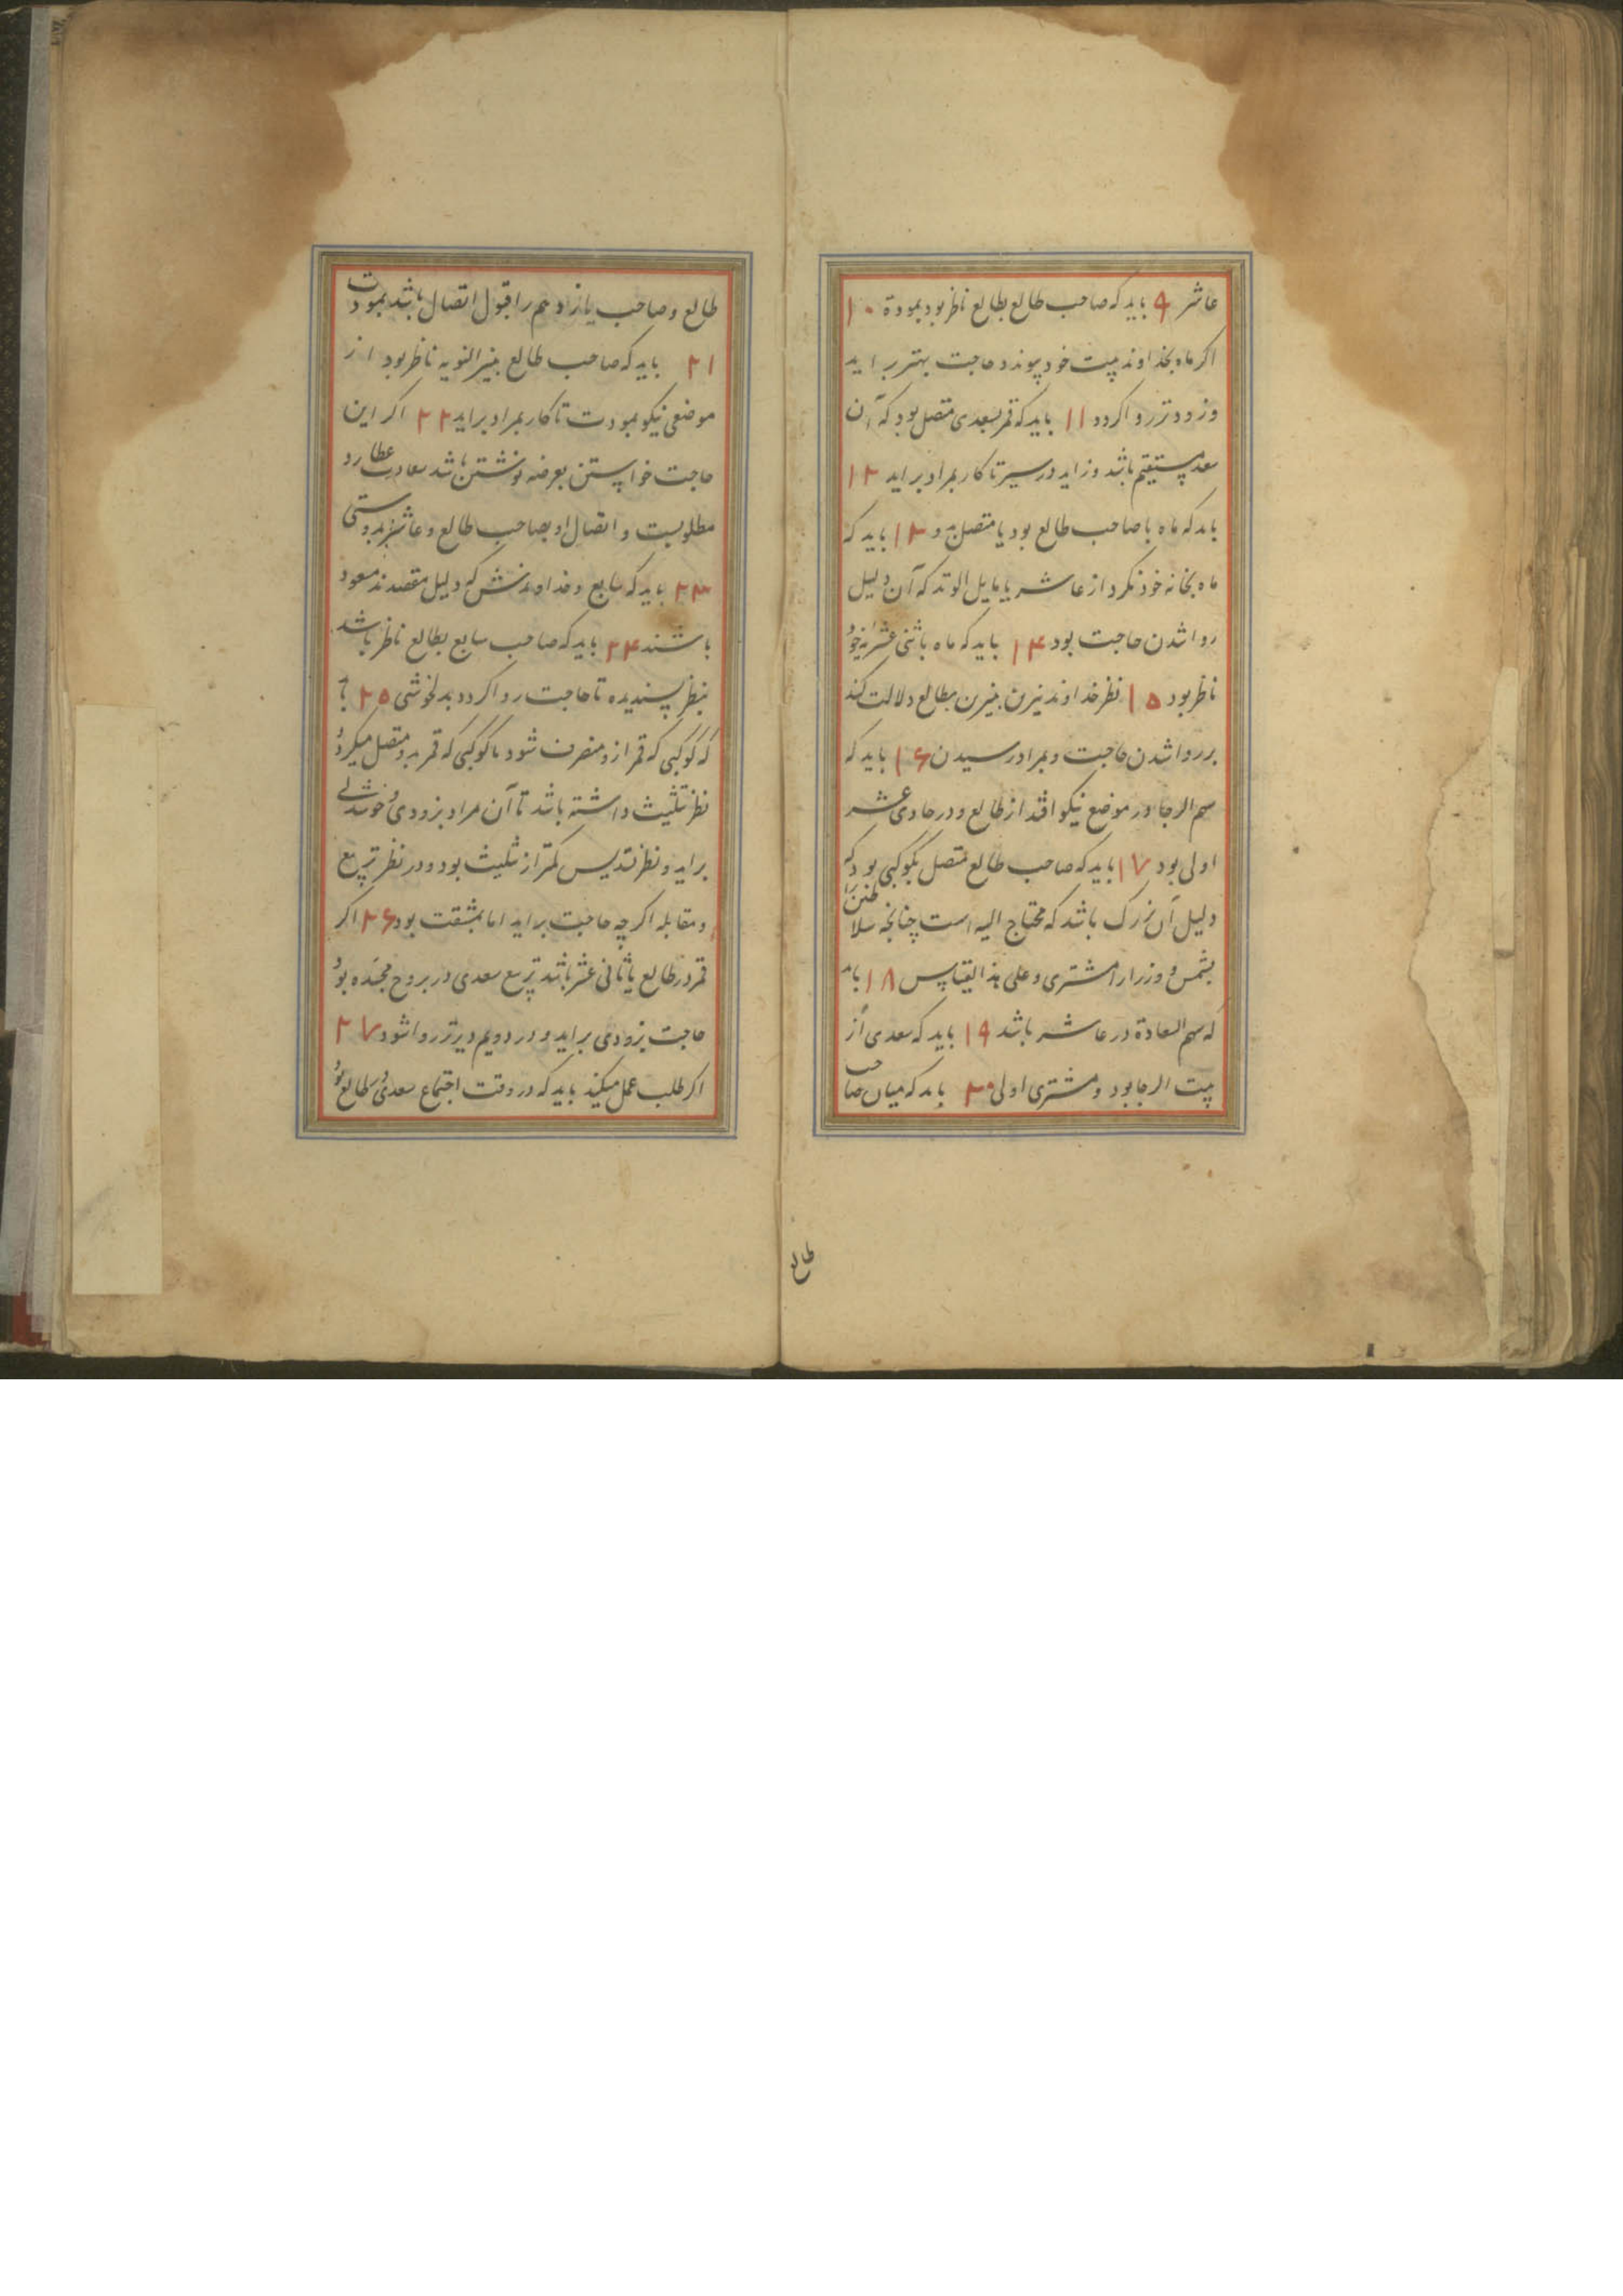 عاشر ۹ باید که صاحب طالع بطالع ناظر بود بمودة ۱۰
اکر ماه بخداوند بیت خود پیوندد حاجت بهتر بر اید
و زودتر روا کردد ۱۱ باید که قمر بسعدی متصل بود که آن
سعد مستقیم باشد و زاید در سیر تا کار بمراد بر اید ۱۲
باید که ماه با صاحب طالع بود یا متصل بدو ۱۳ باید که
ماه بخانه خود نکرد از عاشر یا مایل الوتد که آن دلیل
روا شدن حاجت بود ۱۴ باید که ماه باثنی عشریه خود
ناظر بود ۱۵ نظر خداوند نیرین بنیرین بطالع دلالت کند
بر روا شدن حاجت و بمراد رسیدن ۱۶ باید که
سهم الرجا در موضع نیکو افتد از طالع و در حادی عشر
اولی بود ۱۷ باید که صاحب طالع متصل بکوکبی بود که
دلیل آن بزرک باشد که محتاج الیه است چنانجه سلاطین را
بشمس و وزرا را مشتری و علی هذا القیاس ۱۸ باید
که سهم السعادة در عاشر باشد ۱۹ باید که سعدی از
بیت الرجا بود و مشتری اولی ۲۰ باید که میان صاحب
طالع
طالع و صاحب یازدهم را قبول اتصال باشد بمودت
۲۱ باید که صاحب طالع بنیر النوبه ناظر بود از
موضعی نیکو بمودت تا کار بمراد بر اید ۲۲ اکر این
حاجت خواستن بعرضه نوشتن باشد سعادت عطارد
مطلوبست و اتصال او بصاحب طالع و عاشر بدوستی
۲۳ باید که سابع و خداوندش که دلیل مقصدند مسعود
باشند ۲۴ باید که صاحب سابع بطالع ناظر باشد
بنظر پسندیده تا حاجت روا کردد بدلخوشی ۲۵ باید
که کوکبی که قمر ازو منصرف شود با کوکبی که قمر بدو متصل میکردد
نظر تثلیث داشته باشد تا آن مراد بزودی و خوشدلی
براید و نظر تسدیس کمتر از تثلیث بود و در نظر تربیع
و مقابله اکر چه حاجت براید اما بمشقت بود ۲۶ اکر
قمر در طالع یا ثانی عشر باشد تربیع سعدی در بروج مجسده بود
حاجت بزودی براید و در دویم دیرتر روا شود ۲۷
اکر طلب عمل میکند باید که در وقت اجتماع سعدی در طالع بود